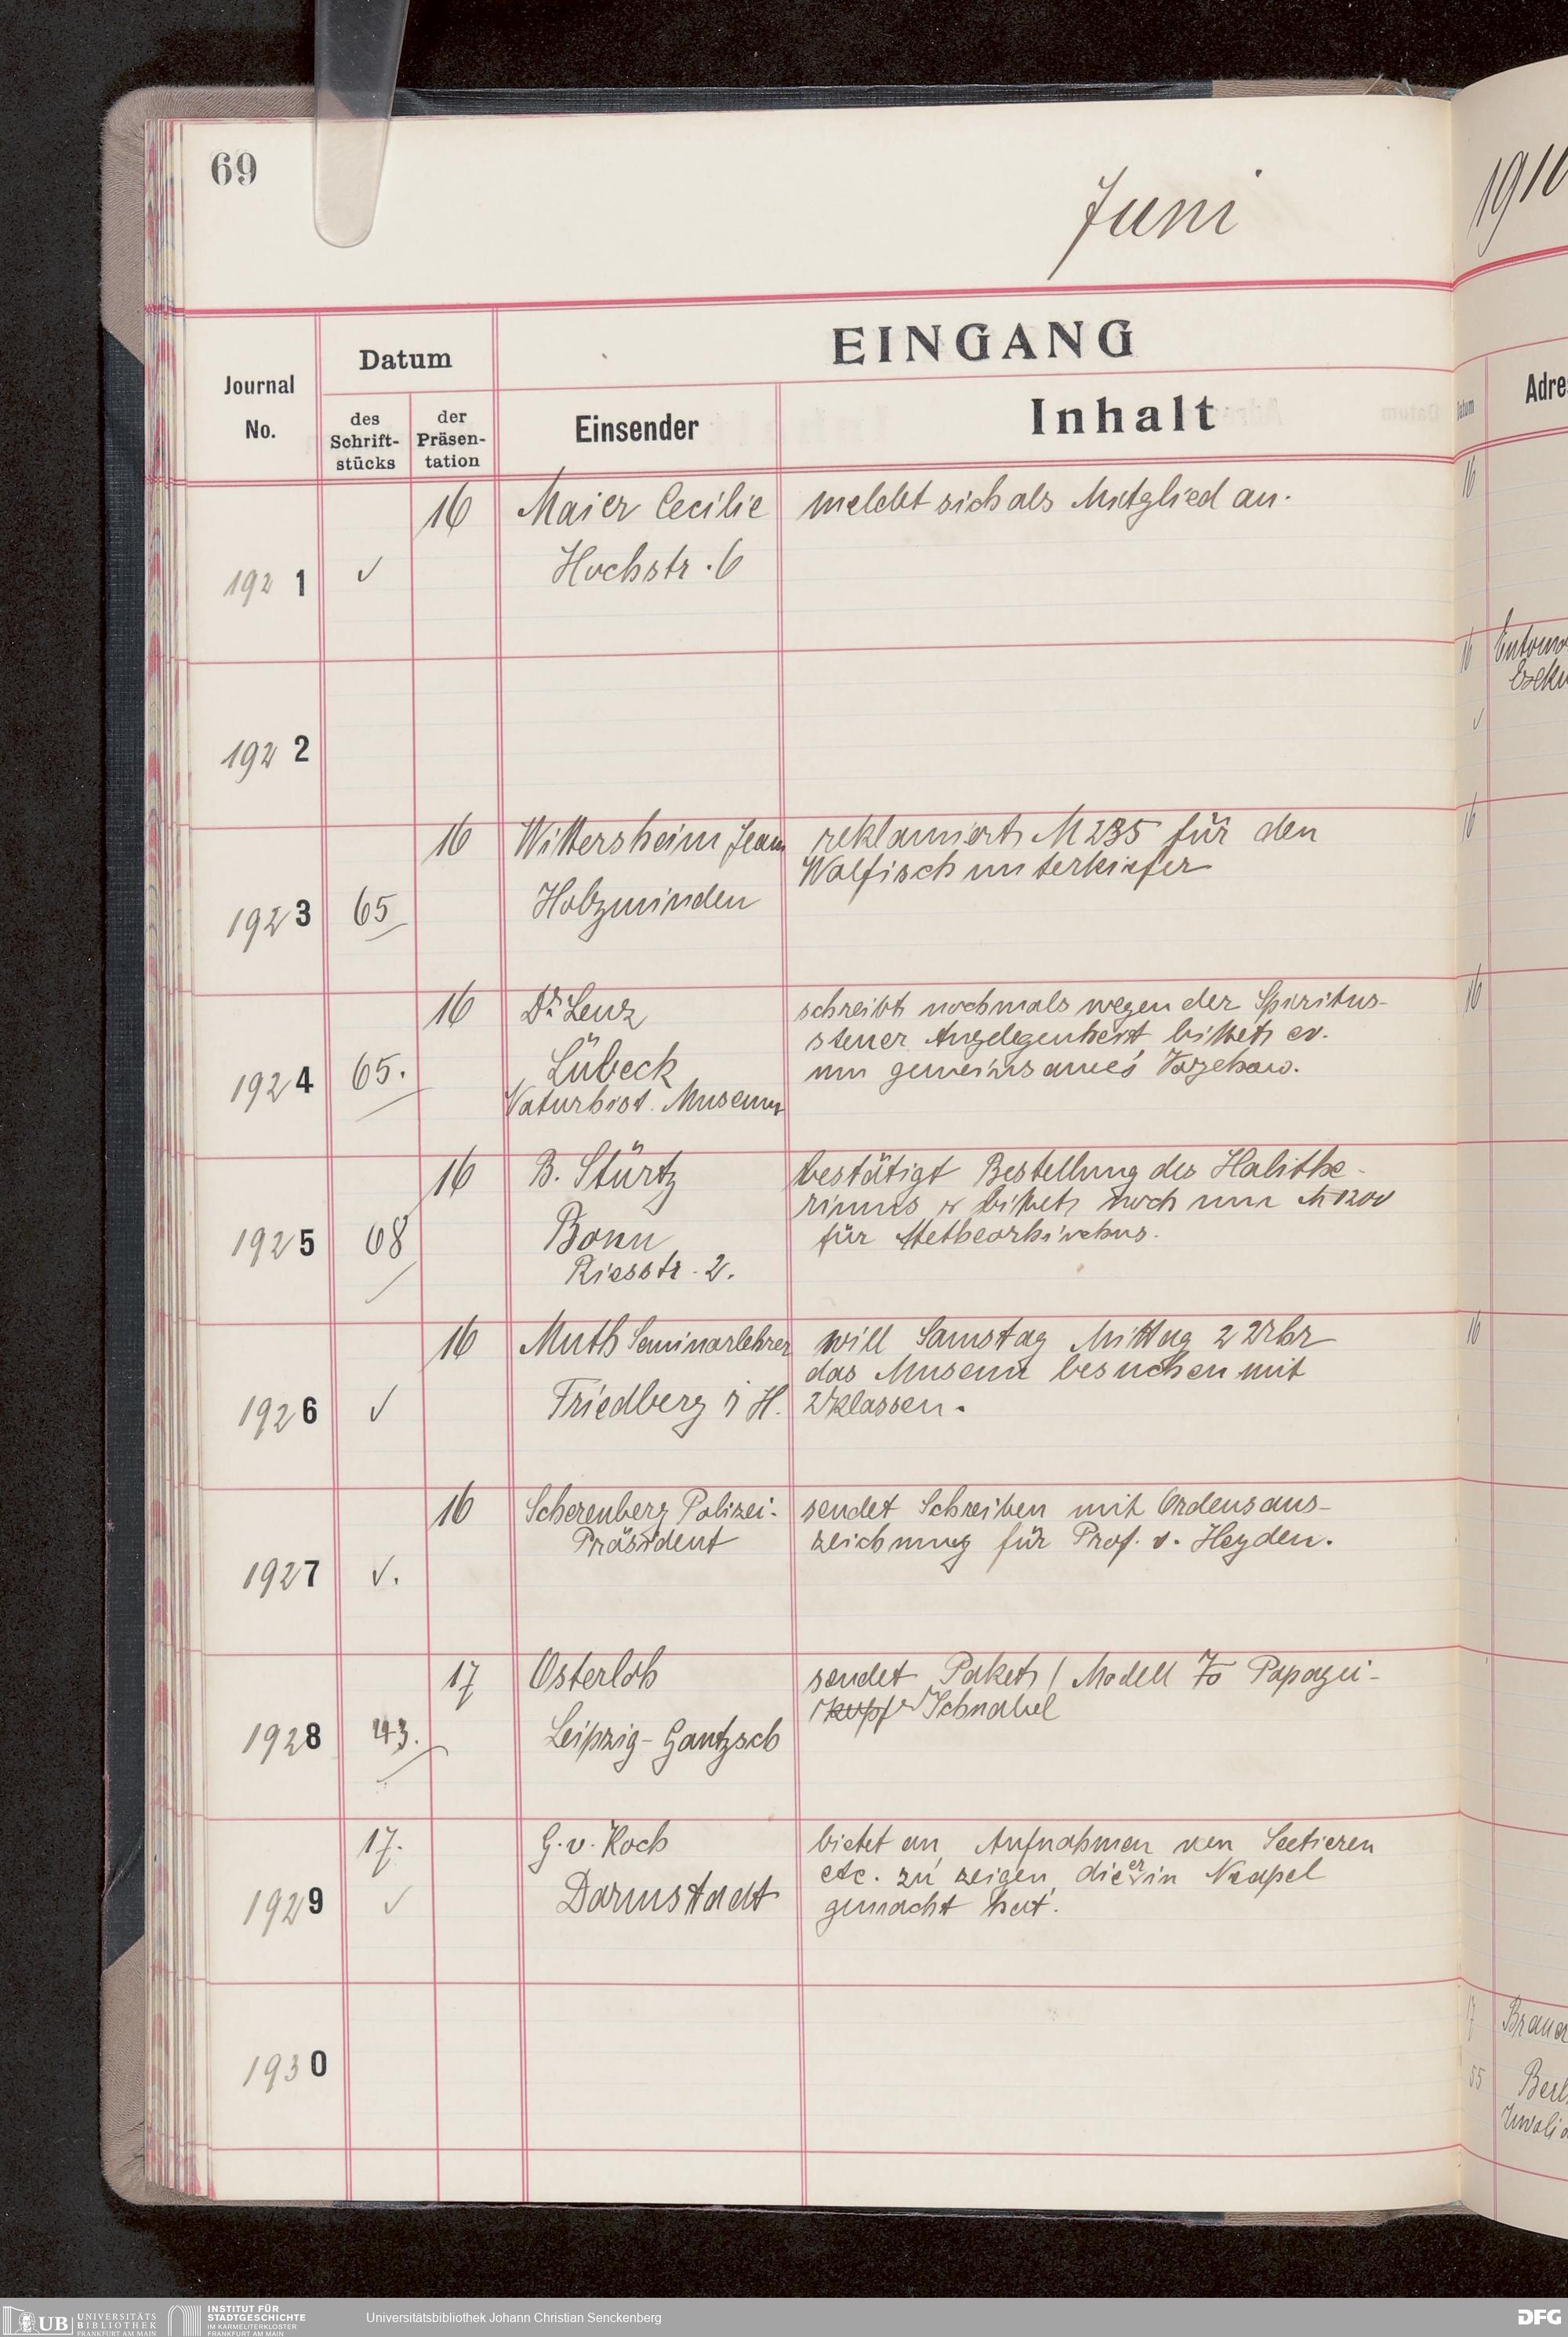 69
Juni
1910
EINGANG
Journal
No.
Datum
des
Schrift-
stücks
der
Präsen-
tation
Einsender
Inhalt
Datum
Adre
1921 ✓ 16 Maier Cecilie meldet sich als Mitglied an. 16
Hochstr. 6
1922 16 Entomo
✓
1923 65 16 Wittersheim Jean reklamiert M 235 für den 16
Walfischunterkiefer
Holzminden
1924 65. 16 Dr. Lenz schreibt nochmals wegen der Spiritus- 16
steuer Angelegenheit, bittet ev.
Lübeck um gemeinsames Vorgehen.
Naturhist. Museum
1925 08 16 B. Stürtz bestätigt Bestellung des Halithe-
riums & bittet noch um M 1200
Bonn für
Riesstr. 2.
1926 ✓ 16 Muth Seminarlehrer will Samstag Mittag 2 Uhr 16
das Museum besuchen mit
Friedberg i H. 2 Klassen.
1927 ✓. 16 Scherenberg Polizei- sendet Schreiben mit Ordensaus-
Präsident zeichnung für Prof. v. Heyden.
1928 43. 17 Osterloh sendet Paket, Modell Papagei-
kopf Schnabel
Leipzig-Gautzsch
1929 17. G. v. Koch bietet an, Aufnahmen von Seetieren
✓ etc. zu zeigen, die er in Neapel
Darmstadt gemacht hat.
1930 17 Brauer
55 Berl
Invalid
UB UNIVERSITÄTS
BIBLIOTHEK
FRANKFURT AM MAIN
INSTITUT FÜR
STADTGESCHICHTE
IM KARMELITERKLOSTER
FRANKFURT AM MAIN
Universitätsbibliothek Johann Christian Senckenberg
DFG